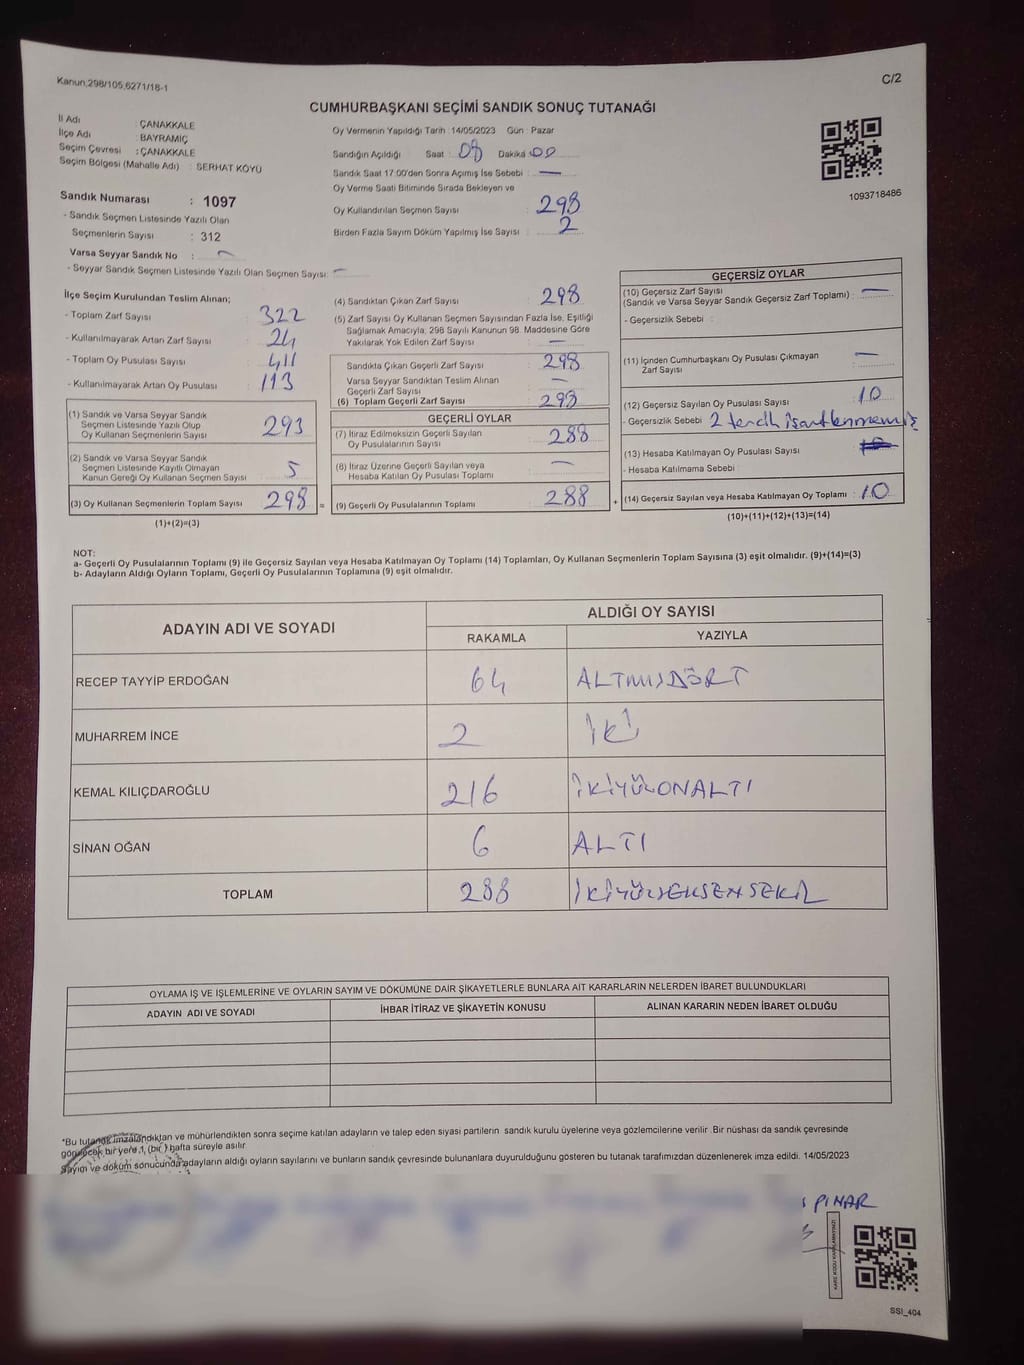 Kanun,298/105,6271/18-1
C/2
CUMHURBAŞKANI SEÇİMİ SANDIK SONUÇ TUTANAĞI
İl Adı : ÇANAKKALE
İlçe Adı : BAYRAMİÇ
Seçim Çevresi : ÇANAKKALE
Seçim Bölgesi (Mahalle Adı) : SERHAT KÖYÜ
Sandık Numarası : 1097
- Sandık Seçmen Listesinde Yazılı Olan
Seçmenlerin Sayısı : 312
Varsa Seyyar Sandık No : -
- Seyyar Sandık Seçmen Listesinde Yazılı Olan Seçmen Sayısı: -
Oy Vermenin Yapıldığı Tarih 14/05/2023 Gün : Pazar
Sandığın Açıldığı Saat : 08 Dakika 00
Sandık Saat 17.00'den Sonra Açımış İse Sebebi : -
Oy Verme Saati Bitiminde Sırada Bekleyen ve
Oy Kullandırılan Seçmen Sayısı : 298
Birden Fazla Sayım Döküm Yapılmış İse Sayısı : 2
1093718486
İlçe Seçim Kurulundan Teslim Alınan;
- Toplam Zarf Sayısı : 322
- Kullanılmayarak Artan Zarf Sayısı : 24
- Toplam Oy Pusulası Sayısı : 411
- Kullanılmayarak Artan Oy Pusulası : 113
(1) Sandık ve Varsa Seyyar Sandık
Seçmen Listesinde Yazılı Olup
Oy Kullanan Seçmenlerin Sayısı 293
(2) Sandık ve Varsa Seyyar Sandık
Seçmen Listesinde Kayıtlı Olmayan
Kanun Gereği Oy Kullanan Seçmen Sayısı 5
(3) Oy Kullanan Seçmenlerin Toplam Sayısı 298 =
(1)+(2)=(3)
(4) Sandıktan Çıkan Zarf Sayısı : 298
(5) Zarf Sayısı Oy Kullanan Seçmen Sayısından Fazla İse, Eşitliği
Sağlamak Amacıyla, 298 Sayılı Kanunun 98. Maddesine Göre
Yakılarak Yok Edilen Zarf Sayısı : -
Sandıkta Çıkan Geçerli Zarf Sayısı : 298
Varsa Seyyar Sandıktan Teslim Alınan
Geçerli Zarf Sayısı : -
(6) Toplam Geçerli Zarf Sayısı : 298
GEÇERLİ OYLAR
(7) İtiraz Edilmeksizin Geçerli Sayılan
Oy Pusulasının Sayısı : 288
(8) İtiraz Üzerine Geçerli Sayılan veya
Hesaba Katılan Oy Pusulası Toplamı : -
(9) Geçerli Oy Pusulalarının Toplamı : 288 +
GEÇERSİZ OYLAR
(10) Geçersiz Zarf Sayısı
(Sandık ve Varsa Seyyar Sandık Geçersiz Zarf Toplamı) : -
- Geçersizlik Sebebi :
(11) İçinden Cumhurbaşkanı Oy Pusulası Çıkmayan
Zarf Sayısı : -
(12) Geçersiz Sayılan Oy Pusulası Sayısı : 10
- Geçersizlik Sebebi 2 tercih işaretlenmemiş
(13) Hesaba Katılmayan Oy Pusulası Sayısı :
- Hesaba Katılmama Sebebi :
(14) Geçersiz Sayılan veya Hesaba Katılmayan Oy Toplamı : 10
(10)+(11)+(12)+(13)=(14)
NOT:
a- Geçerli Oy Pusulalarının Toplamı (9) ile Geçersiz Sayılan veya Hesaba Katılmayan Oy Toplamı (14) Toplamları, Oy Kullanan Seçmenlerin Toplam Sayısına (3) eşit olmalıdır. (9)+(14)=(3)
b- Adayların Aldığı Oyların Toplamı, Geçerli Oy Pusulalarının Toplamına (9) eşit olmalıdır.
ADAYIN ADI VE SOYADI ALDIĞI OY SAYISI
RAKAMLA YAZIYLA
RECEP TAYYİP ERDOĞAN 64 ALTMIŞDÖRT
MUHARREM İNCE 2 İKİ
KEMAL KILIÇDAROĞLU 216 İKİYÜZONALTI
SİNAN OĞAN 6 ALTI
TOPLAM 288 İKİYÜZSEKSENSEKİZ
OYLAMA İŞ VE İŞLEMLERİNE VE OYLARIN SAYIM VE DÖKÜMÜNE DAİR ŞİKAYETLERLE BUNLARA AİT KARARLARIN NELERDEN İBARET BULUNDUKLARI
ADAYIN ADI VE SOYADI İHBAR İTİRAZ VE ŞİKAYETİN KONUSU ALINAN KARARIN NEDEN İBARET OLDUĞU
*Bu tutanak imzalandıktan ve mühürlendikten sonra seçime katılan adayların ve talep eden siyasi partilerin sandık kurulu üyelerine veya gözlemcilerine verilir .Bir nüshası da sandık çevresinde
görülecek bir yere 1 (bir) hafta süreyle asılır.
Sayım ve döküm sonucunda adayların aldığı oyların sayılarını ve bunların sandık çevresinde bulunanlara duyurulduğunu gösteren bu tutanak tarafımızdan düzenlenerek imza edildi. 14/05/2023
PINAR
SSI_404